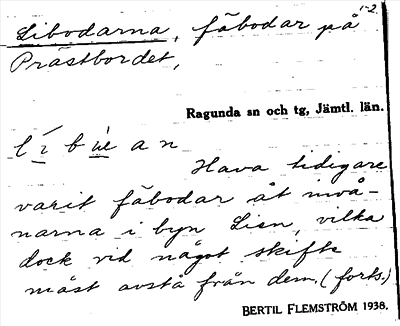 1-2
Libodarna, fäbodar på
Prästbordet,
Ragunda sn och tg, Jämtl. län.
Hava tidigare
varit fäbodar åt invå-
narna i byn Lien, vilka
dock vid något skifte
måst avstå från dem. (forts.)
BERTIL FLEMSTRÖM 1938.